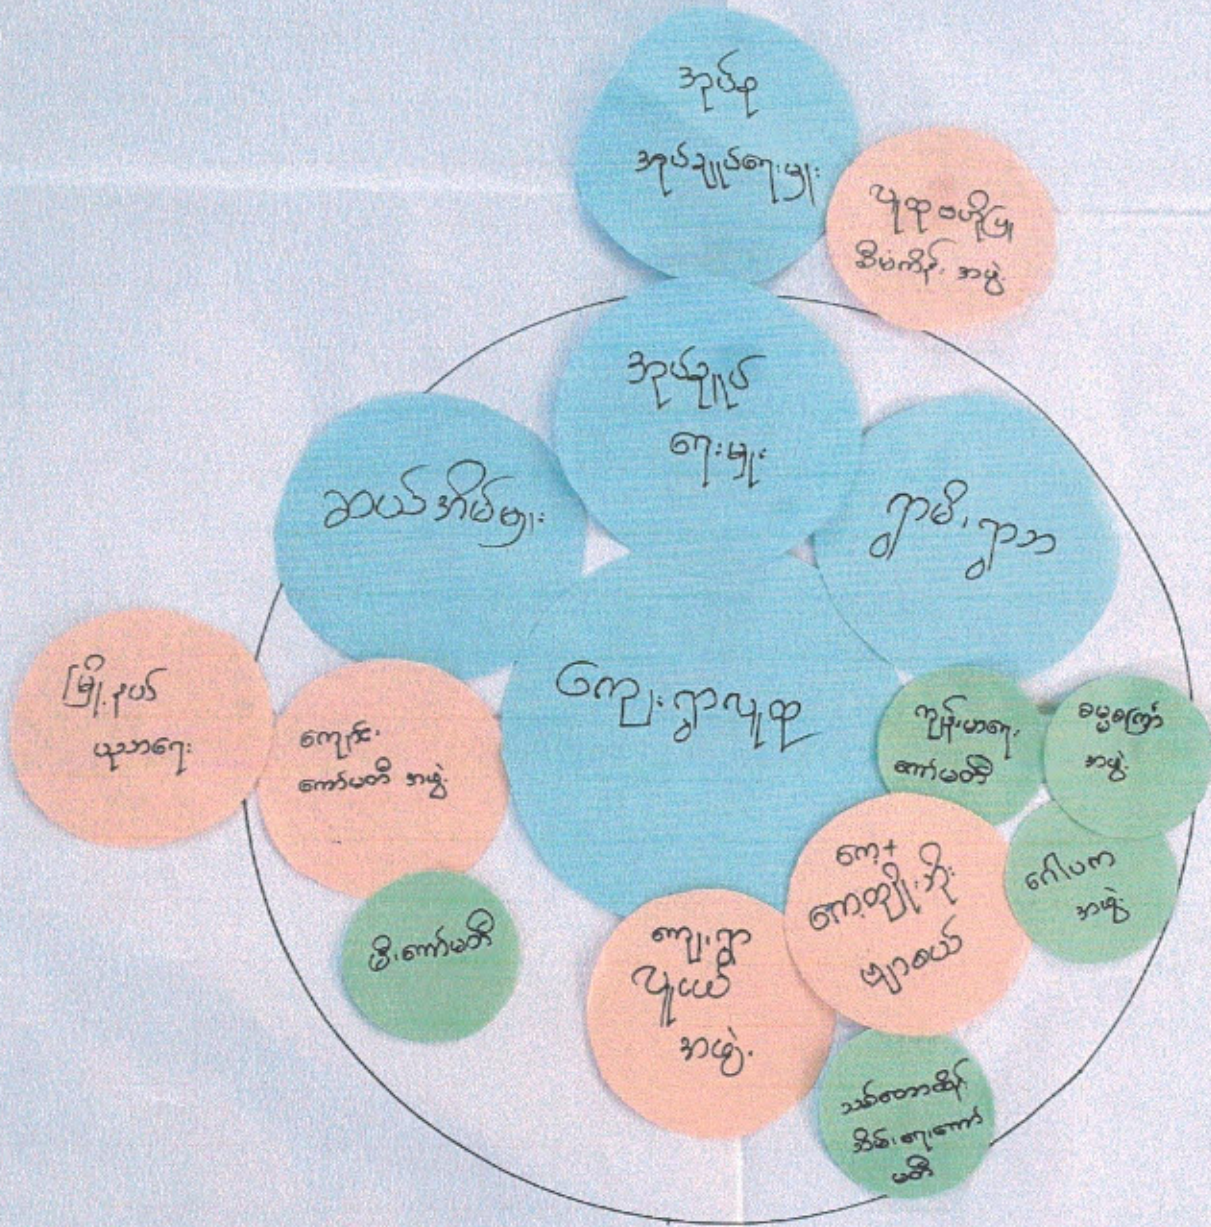 အုပ်စု
အုပ်ချုပ်ရေးမှူး
လူထုဗဟိုပြု
စီမံကိန်း အဖွဲ့
အုပ်ချုပ်
ရေးမှူး
ဆယ်အိမ်မှူး
ရွာမိ၊ ရွာဘ
ကျေးရွာလူထု
မြို့နယ်
ပညာရေး
ကျောင်း
ကော်မတီ အဖွဲ့
ကျန်းမာရေး
ကော်မတီ
ဓမ္မစကြာ
အဖွဲ့
ဂေါပက
အဖွဲ့
မီးကော်မတီ
ကျေးရွာ
လူငယ်
အဖွဲ့
သစ်တောထိန်း
သိမ်းရေးကော်
မတီ